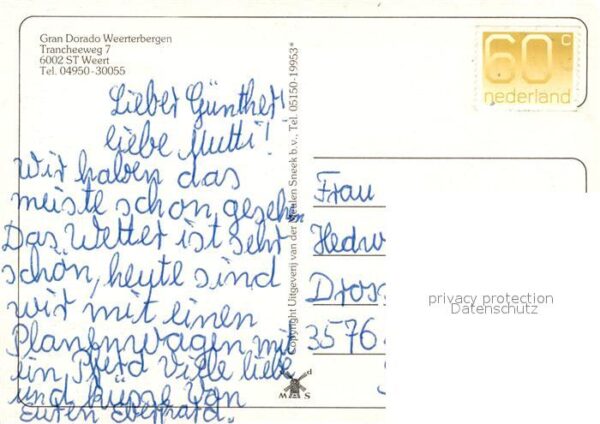 Gran Dorado Weerterbergen
Trancheeweg 7
6002 ST Weert
Tel. 04950-30055
60 c
nederland
Lieber Günther!
liebe Mutti!
Wir haben das
meiste schon gesehn
Das Wetter ist sehr
schön, heute sind
wir mit einen
Planenwagen mit
ein Pferd Viele liebe
und küsse von
Euren Eberhard.
Copyright Uitgeverij van der Meulen Sneek b.v. Tel. 05150-19953*
M d S
Frau
Hedw
Dros
3576
privacy protection
Datenschutz